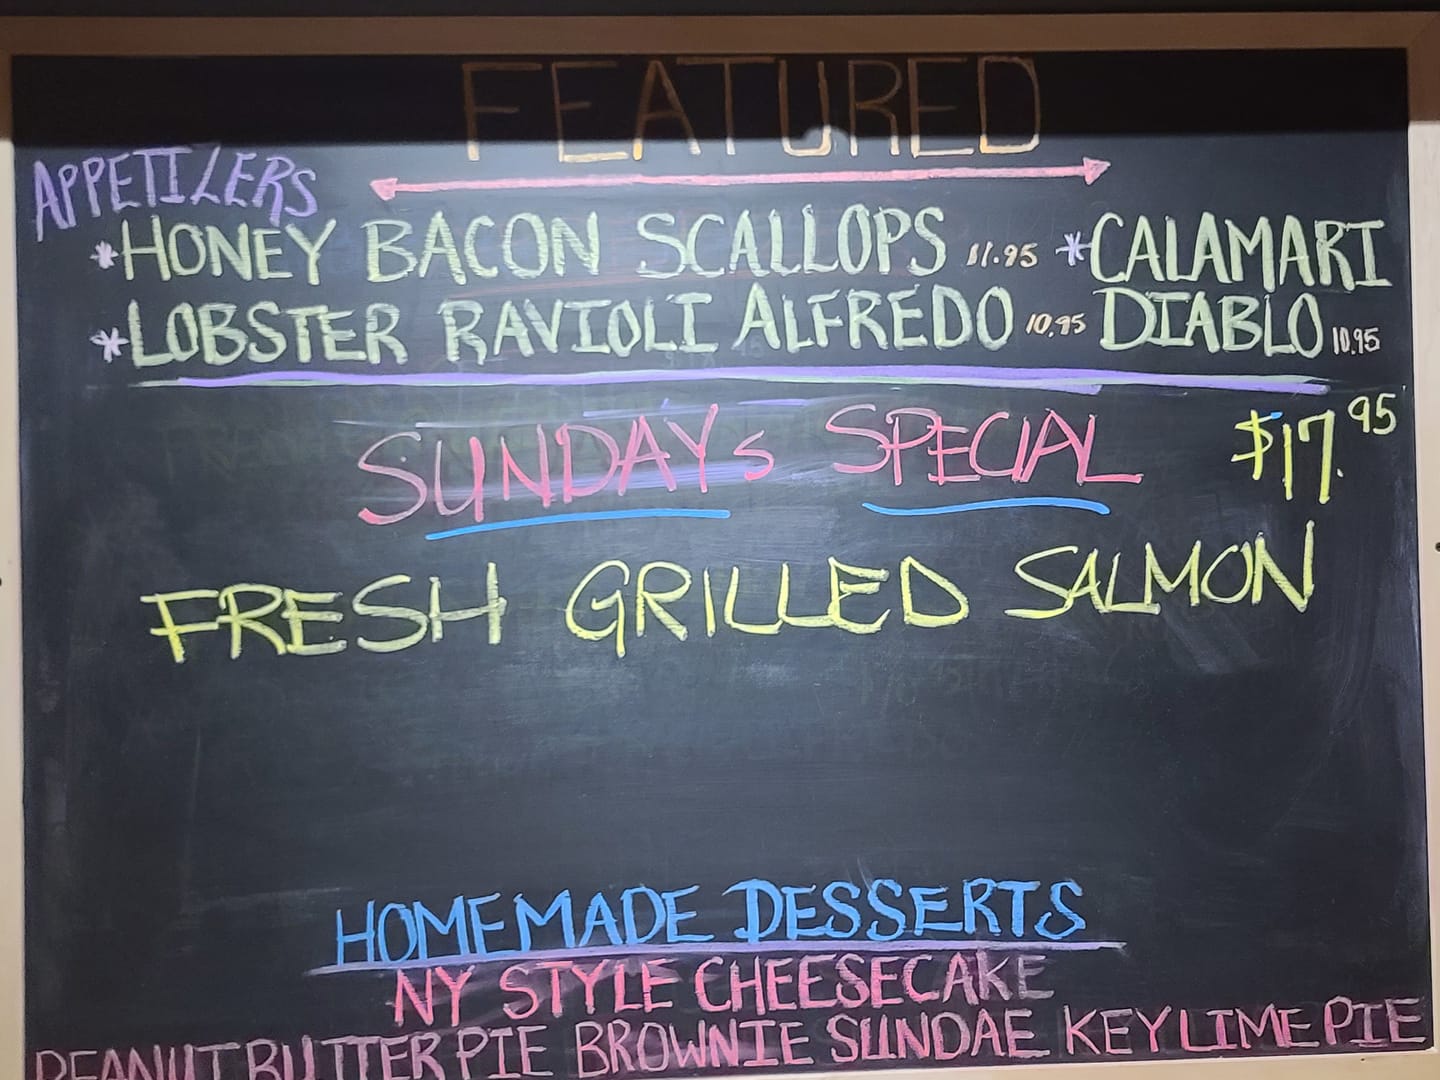 FEATURED
APPETIZERS
*HONEY BACON SCALLOPS 11.95 *CALAMARI
*LOBSTER RAVIOLI ALFREDO 10.95 DIABLO 10.95
SUNDAYs SPECIAL $17.95
FRESH GRILLED SALMON
HOMEMADE DESSERTS
NY STYLE CHEESECAKE
PEANUT BUTTER PIE BROWNIE SUNDAE KEY LIME PIE